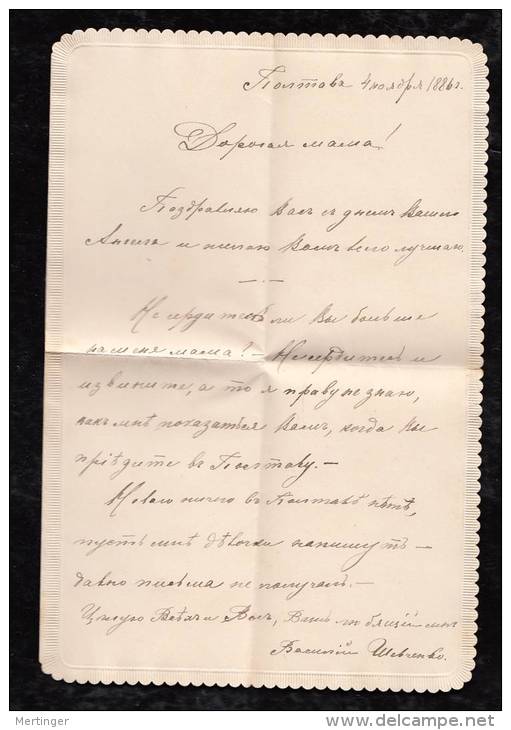 Полтава 4 ноября 1886 г.
Дорогая мама!
Поздравляю Васъ съ днемъ Вашего
Ангела и желаю Вамъ всего лучшаго.
Не сердитесь ли Вы больше
на меня мама! — Не сердитесь и
извините, а то я право не знаю,
какъ мнѣ показаться Вамъ, когда Вы
пріѣдите въ Полтаву. —
Новаго ничего въ Полтавѣ нѣтъ,
пусть мнѣ дѣвочки напишутъ —
давно письма не получалъ. —
Цѣлую Всѣхъ и Васъ, Вашъ любящій сынъ
Василій Шевченко.
Mertinger
delcampe.net